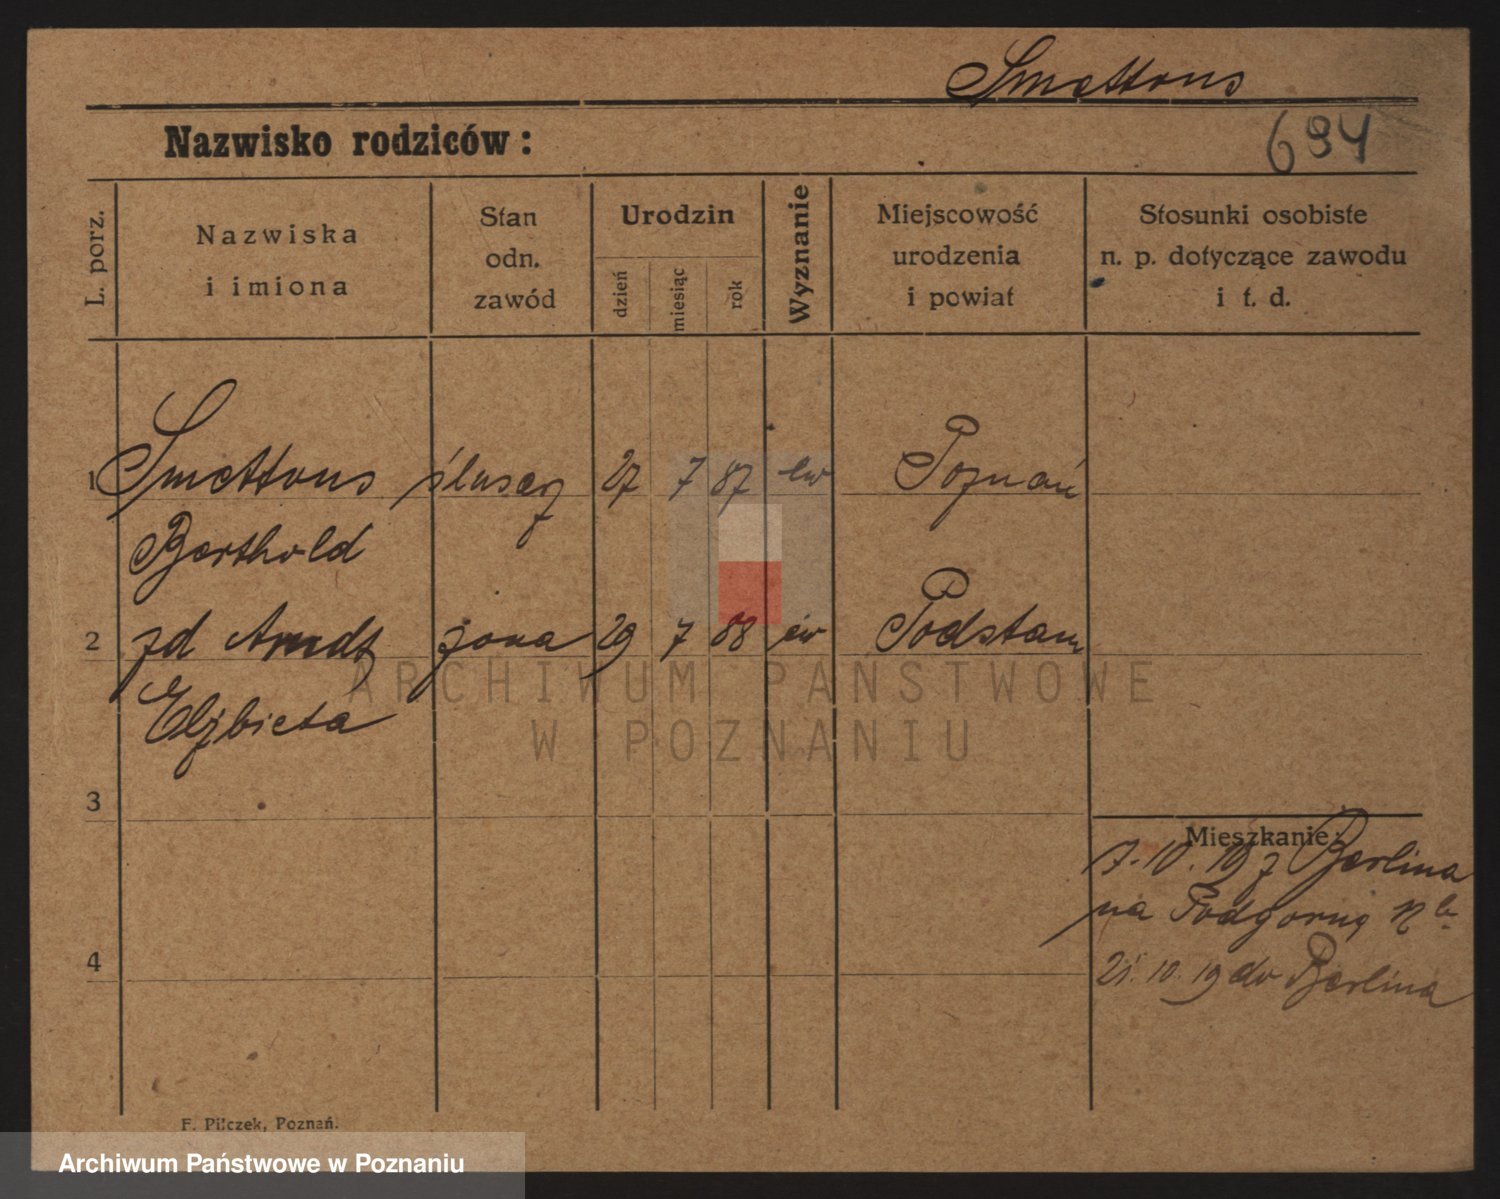 Smettons
694
Nazwisko rodziców:
L. porz.
Nazwiska
i imiona
Stan
odn.
zawód
Urodzin
dzień
miesiąc
rok
Wyznanie
Miejscowość
urodzenia
i powiat
Stosunki osobiste
n. p. dotyczące zawodu
i t. d.
1 Smettons ślusarz 27 7 87 ew Poznań
Berthold
2 zd Arndt żona 29 7 88 ew Podstam
Elżbieta
3
Mieszkanie:
7.10.19 z Berlina
na Podgórną
4
21.10.19 do Berlina
ARCHIWUM PAŃSTWOWE
W POZNANIU
F. Pilczek, Poznań.
Archiwum Państwowe w Poznaniu